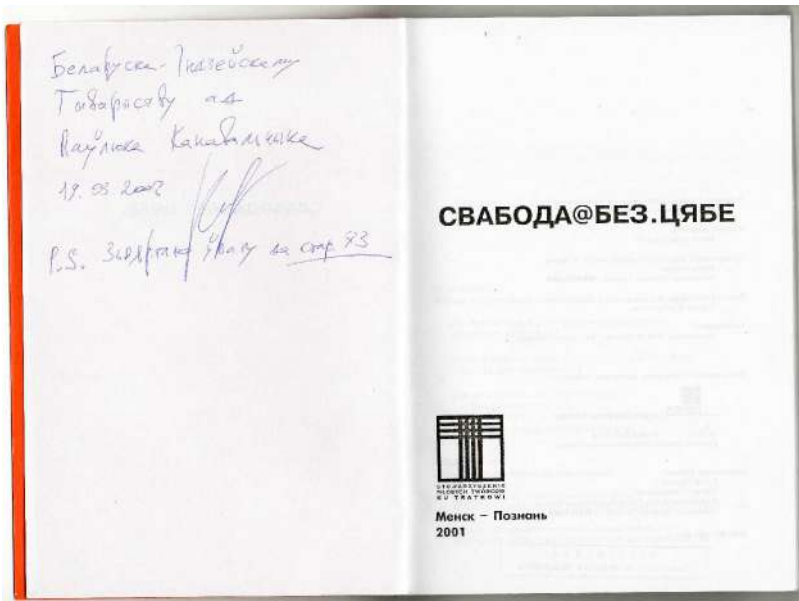 Беларуска-Індзейскаму
Таварыству ад
Паўлюка Канавальчыка
19. 03 2002
P.S. Звяртаю ўвагу на стар 73
СВАБОДА@БЕЗ.ЦЯБЕ
STOWARZYSZENIE
MŁODYCH TWÓRCÓW
KU TRATKOWI
Менск – Познань
2001